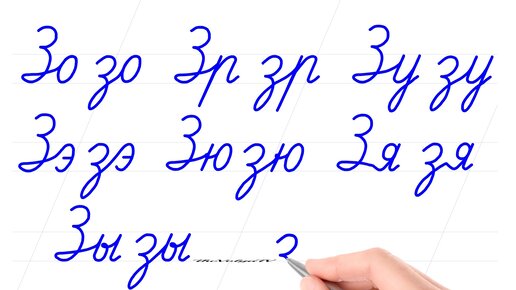 Зо зо Зр зр Зу зу
Зэ зэ Зю зю Зя зя
Зы зы з